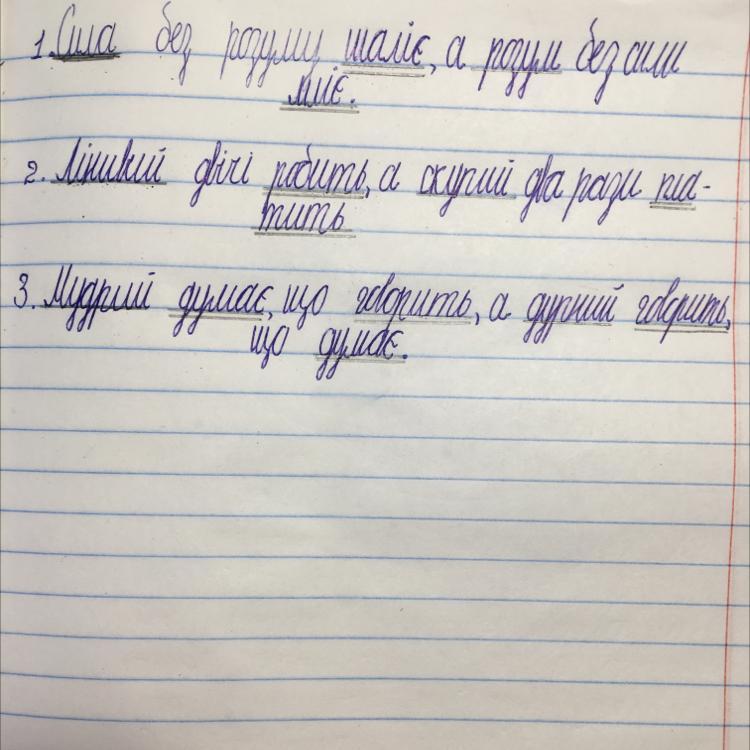 1. Сила без розуму шаліє, а розум без сили
мліє.
2. Лінивий двічі робить, а скупий два рази пла-
тить
3. Мудрий думає, що говорить, а дурний говорить,
що думає.